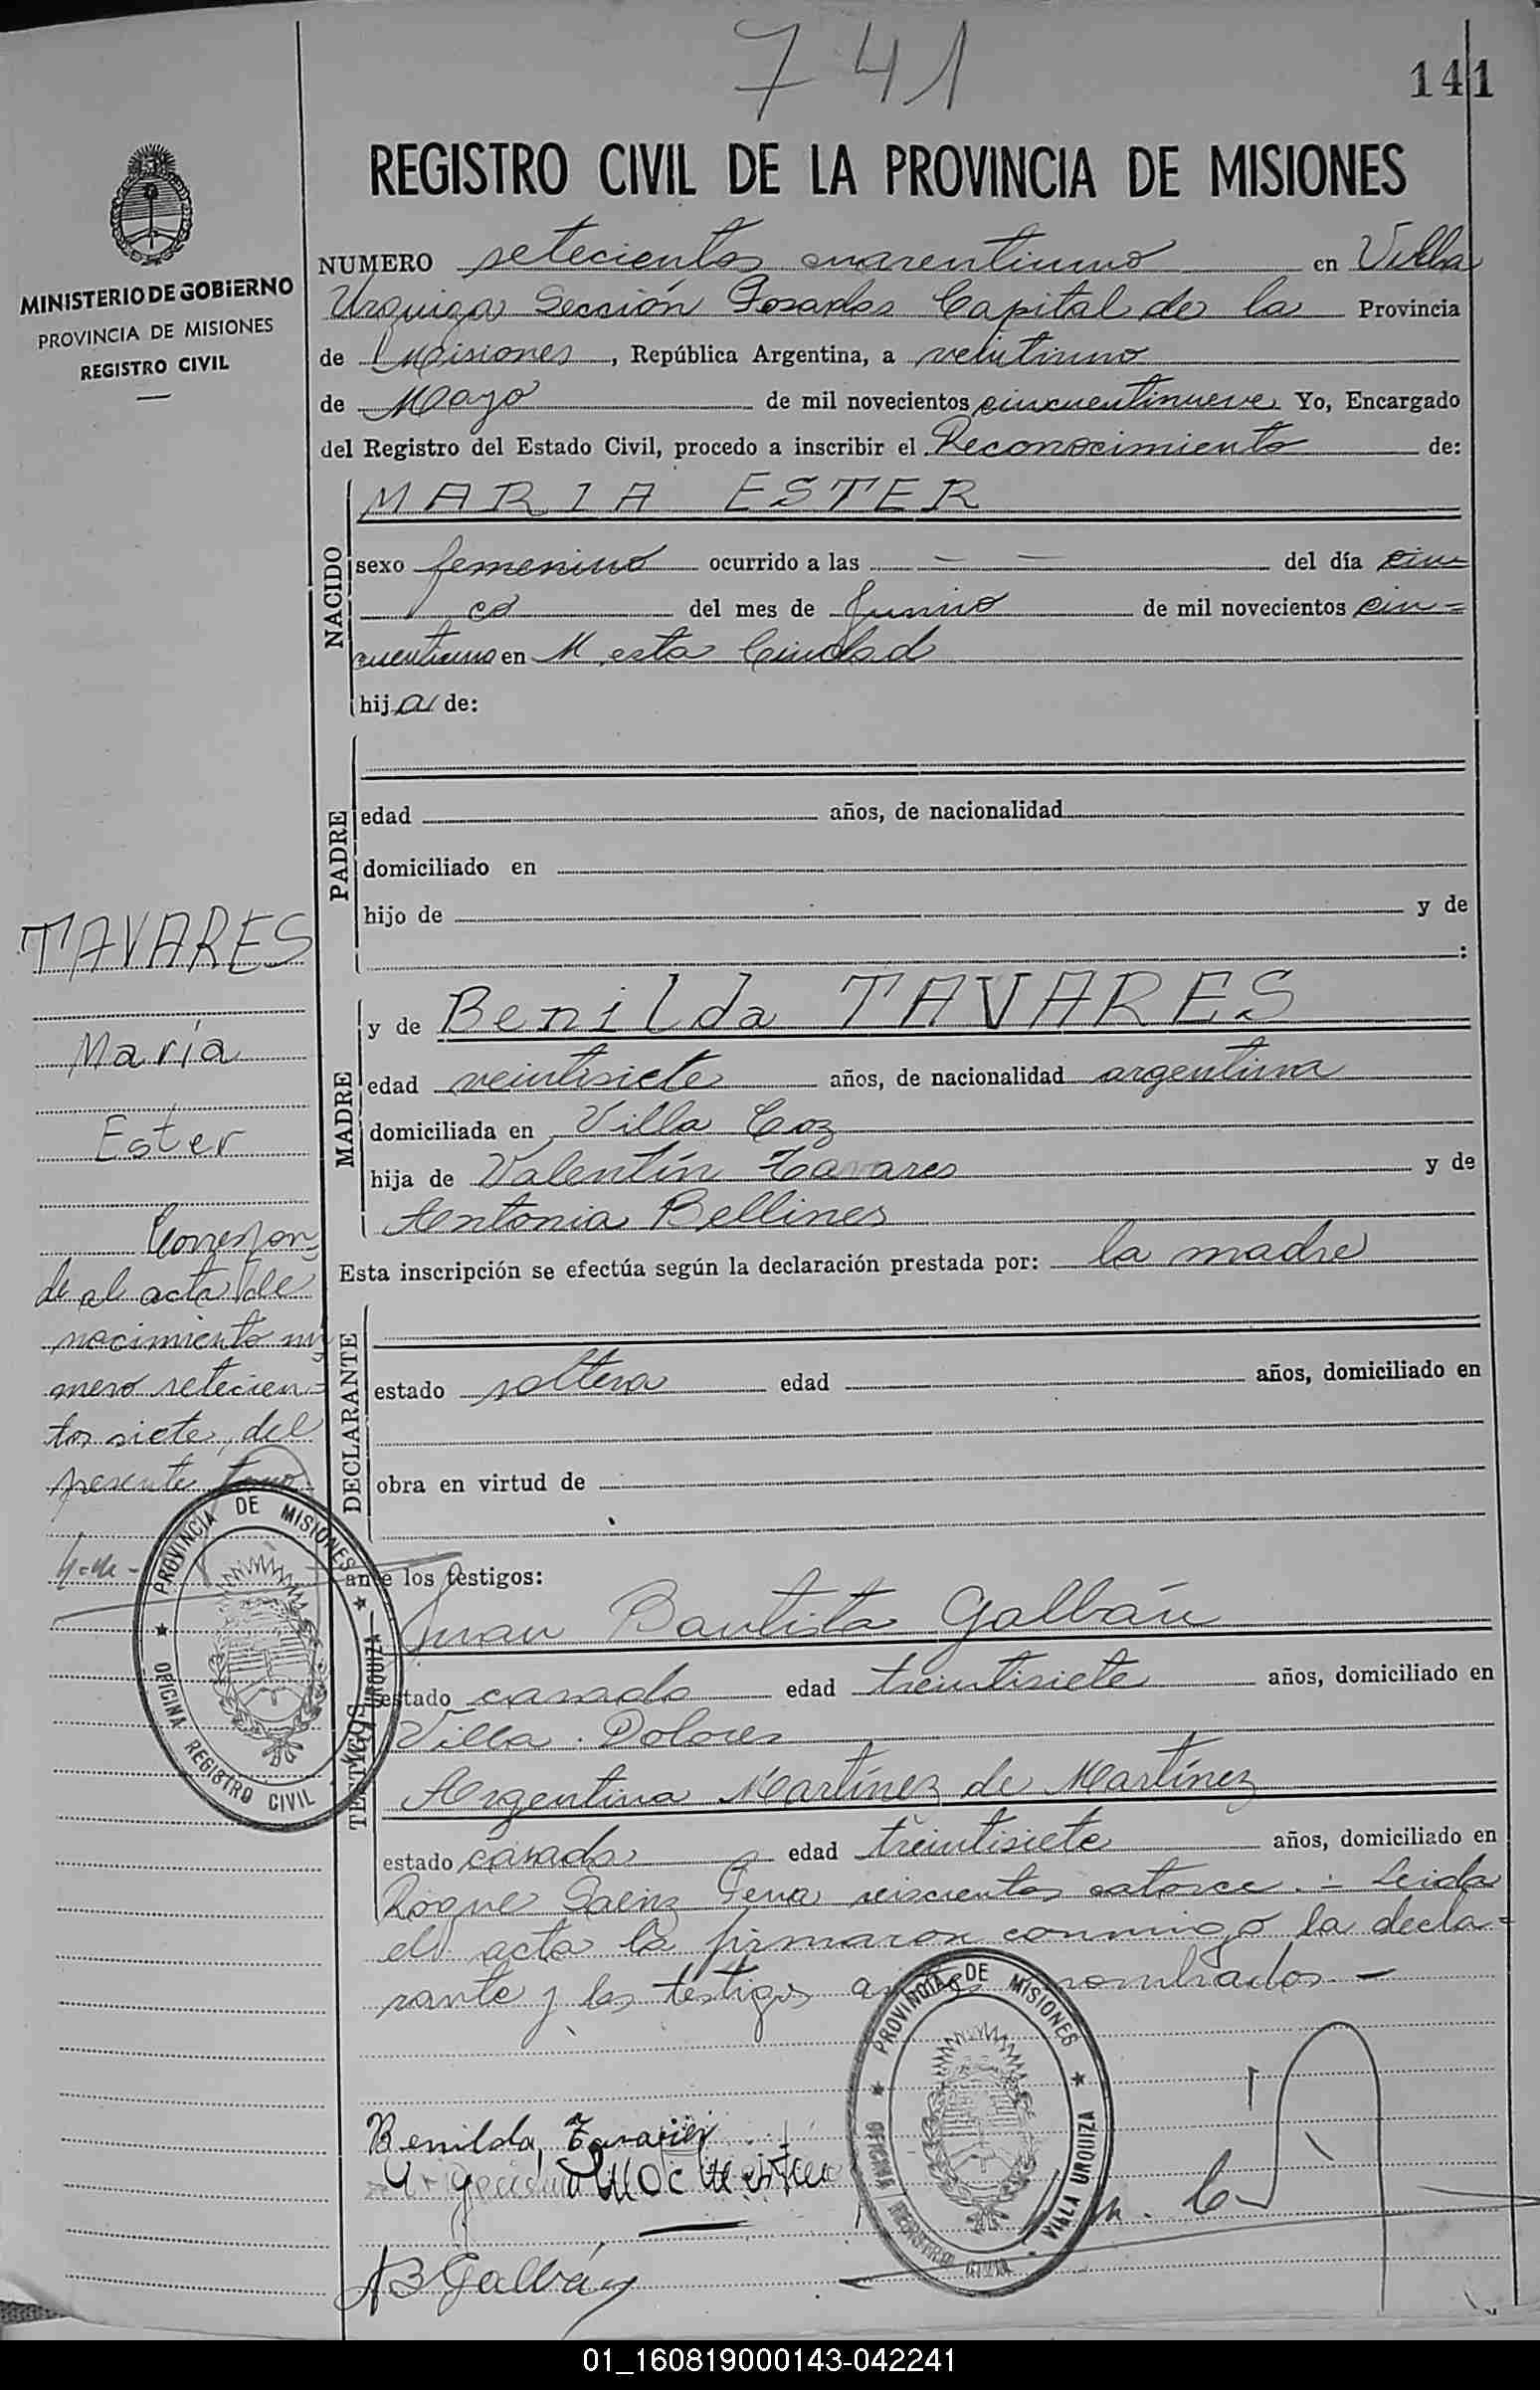 741
141
REGISTRO CIVIL DE LA PROVINCIA DE MISIONES
MINISTERIO DE GOBIERNO
PROVINCIA DE MISIONES
REGISTRO CIVIL
NUMERO setecientos cuarentiuno en Villa
Urquiza Sección Posadas Capital de la Provincia
de Misiones, República Argentina, a veintiuno
de Mayo de mil novecientos cincuentinueve Yo, Encargado
del Registro del Estado Civil, procedo a inscribir el Reconocimiento de:
NACIDO
MARIA ESTER
sexo femenino ocurrido a las — — del día cin-
co del mes de Junio de mil novecientos cin=
cuentiuno en esta Ciudad
hija de:
PADRE
edad años, de nacionalidad
domiciliado en
hijo de y de
:
MADRE
y de Benilda TAVARES
edad veintisiete años, de nacionalidad argentina
domiciliada en Villa Coz
hija de Valentín Tavares y de
Antonia Bellines
Esta inscripción se efectúa según la declaración prestada por: la madre
DECLARANTE
estado soltera edad años, domiciliado en
obra en virtud de
ante los testigos:
TESTIGOS
Juan Bautista Galbán
estado casado edad treintisiete años, domiciliado en
Villa Dolores
Argentina Martínez de Martínez
estado casada edad treintisiete años, domiciliado en
Roque Saenz Pena seiscientos catorce.- Leida
el acta la firmaron conmigo la decla=
rante y los testigos antes nombrados —
TAVARES
María
Ester
Correspon=
de al acta de
nacimiento nú
mero setecien=
tos siete, del
presente tomo
PROVINCIA DE MISIONES
OFICINA REGISTRO CIVIL
VILLA URQUIZA
Benilda Tavares
JB Galbán
PROVINCIA DE MISIONES
OFICINA REGISTRO CIVIL
VILLA URQUIZA
01_160819000143-042241